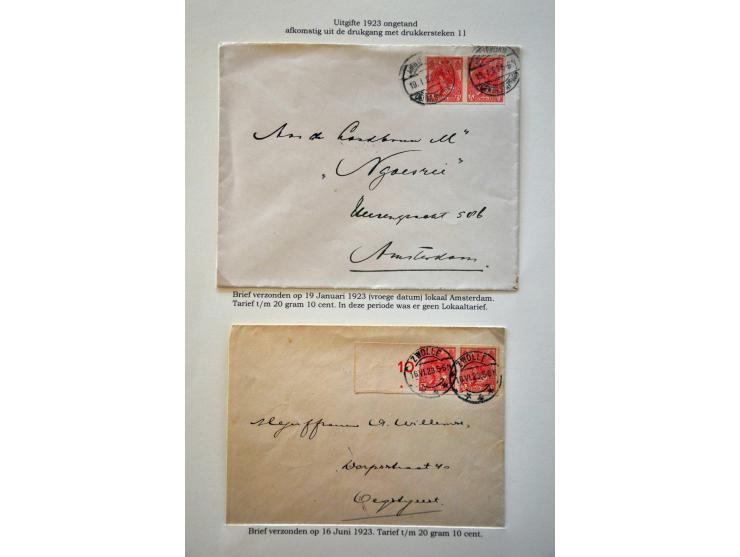 Uitgifte 1923 ongetand
afkomstig uit de drukgang met drukkersteken 11
19.1.
Aan de Landbouw M"
„Ngoesrie"
Heerengracht 506
Amsterdam.
Brief verzonden op 19 Januari 1923 (vroege datum) lokaal Amsterdam.
Tarief t/m 20 gram 10 cent. In deze periode was er geen Lokaaltarief.
10
ZWOLLE
16.VI.23.5-6N
ZWOLLE
16.VI.23.5-6N
Mejuffrouw A. Willemse,
Dorpsstraat 40
Oegstgeest.
Brief verzonden op 16 Juni 1923. Tarief t/m 20 gram 10 cent.